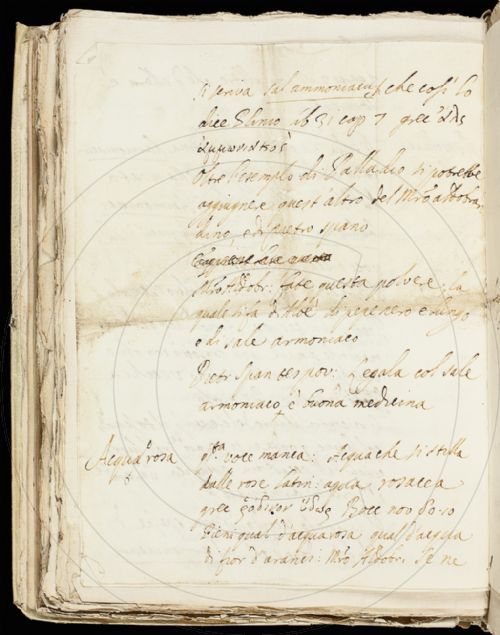 si scriva sal ammoniacus che così lo
dice Plinio lib 31 cap 7 grec ἅλς
ἀμμωνιακός
Oltre l'esempio di Palladio si potrebbe
aggiugnere quest'altro del Mro Aldobran
dino, e di Pietro Spano
Mro Aldobr: fate questa polvere: la
quale si fa d'Aloè di pepe nero e lungo
e di sale armoniaco
Pietr Span tes pov: Legala col sale
armoniaco, è buona medicina
Acqua rosa
qta voce manca: Acqua che si stilla
dalle rose latin: aqua rosacea
grec ῥόδινον ὕδωρ Bocc nov 80. 10
d'acqua rosa qual d'acqua
di fior d'aranci: Mro Aldobr. Se ne